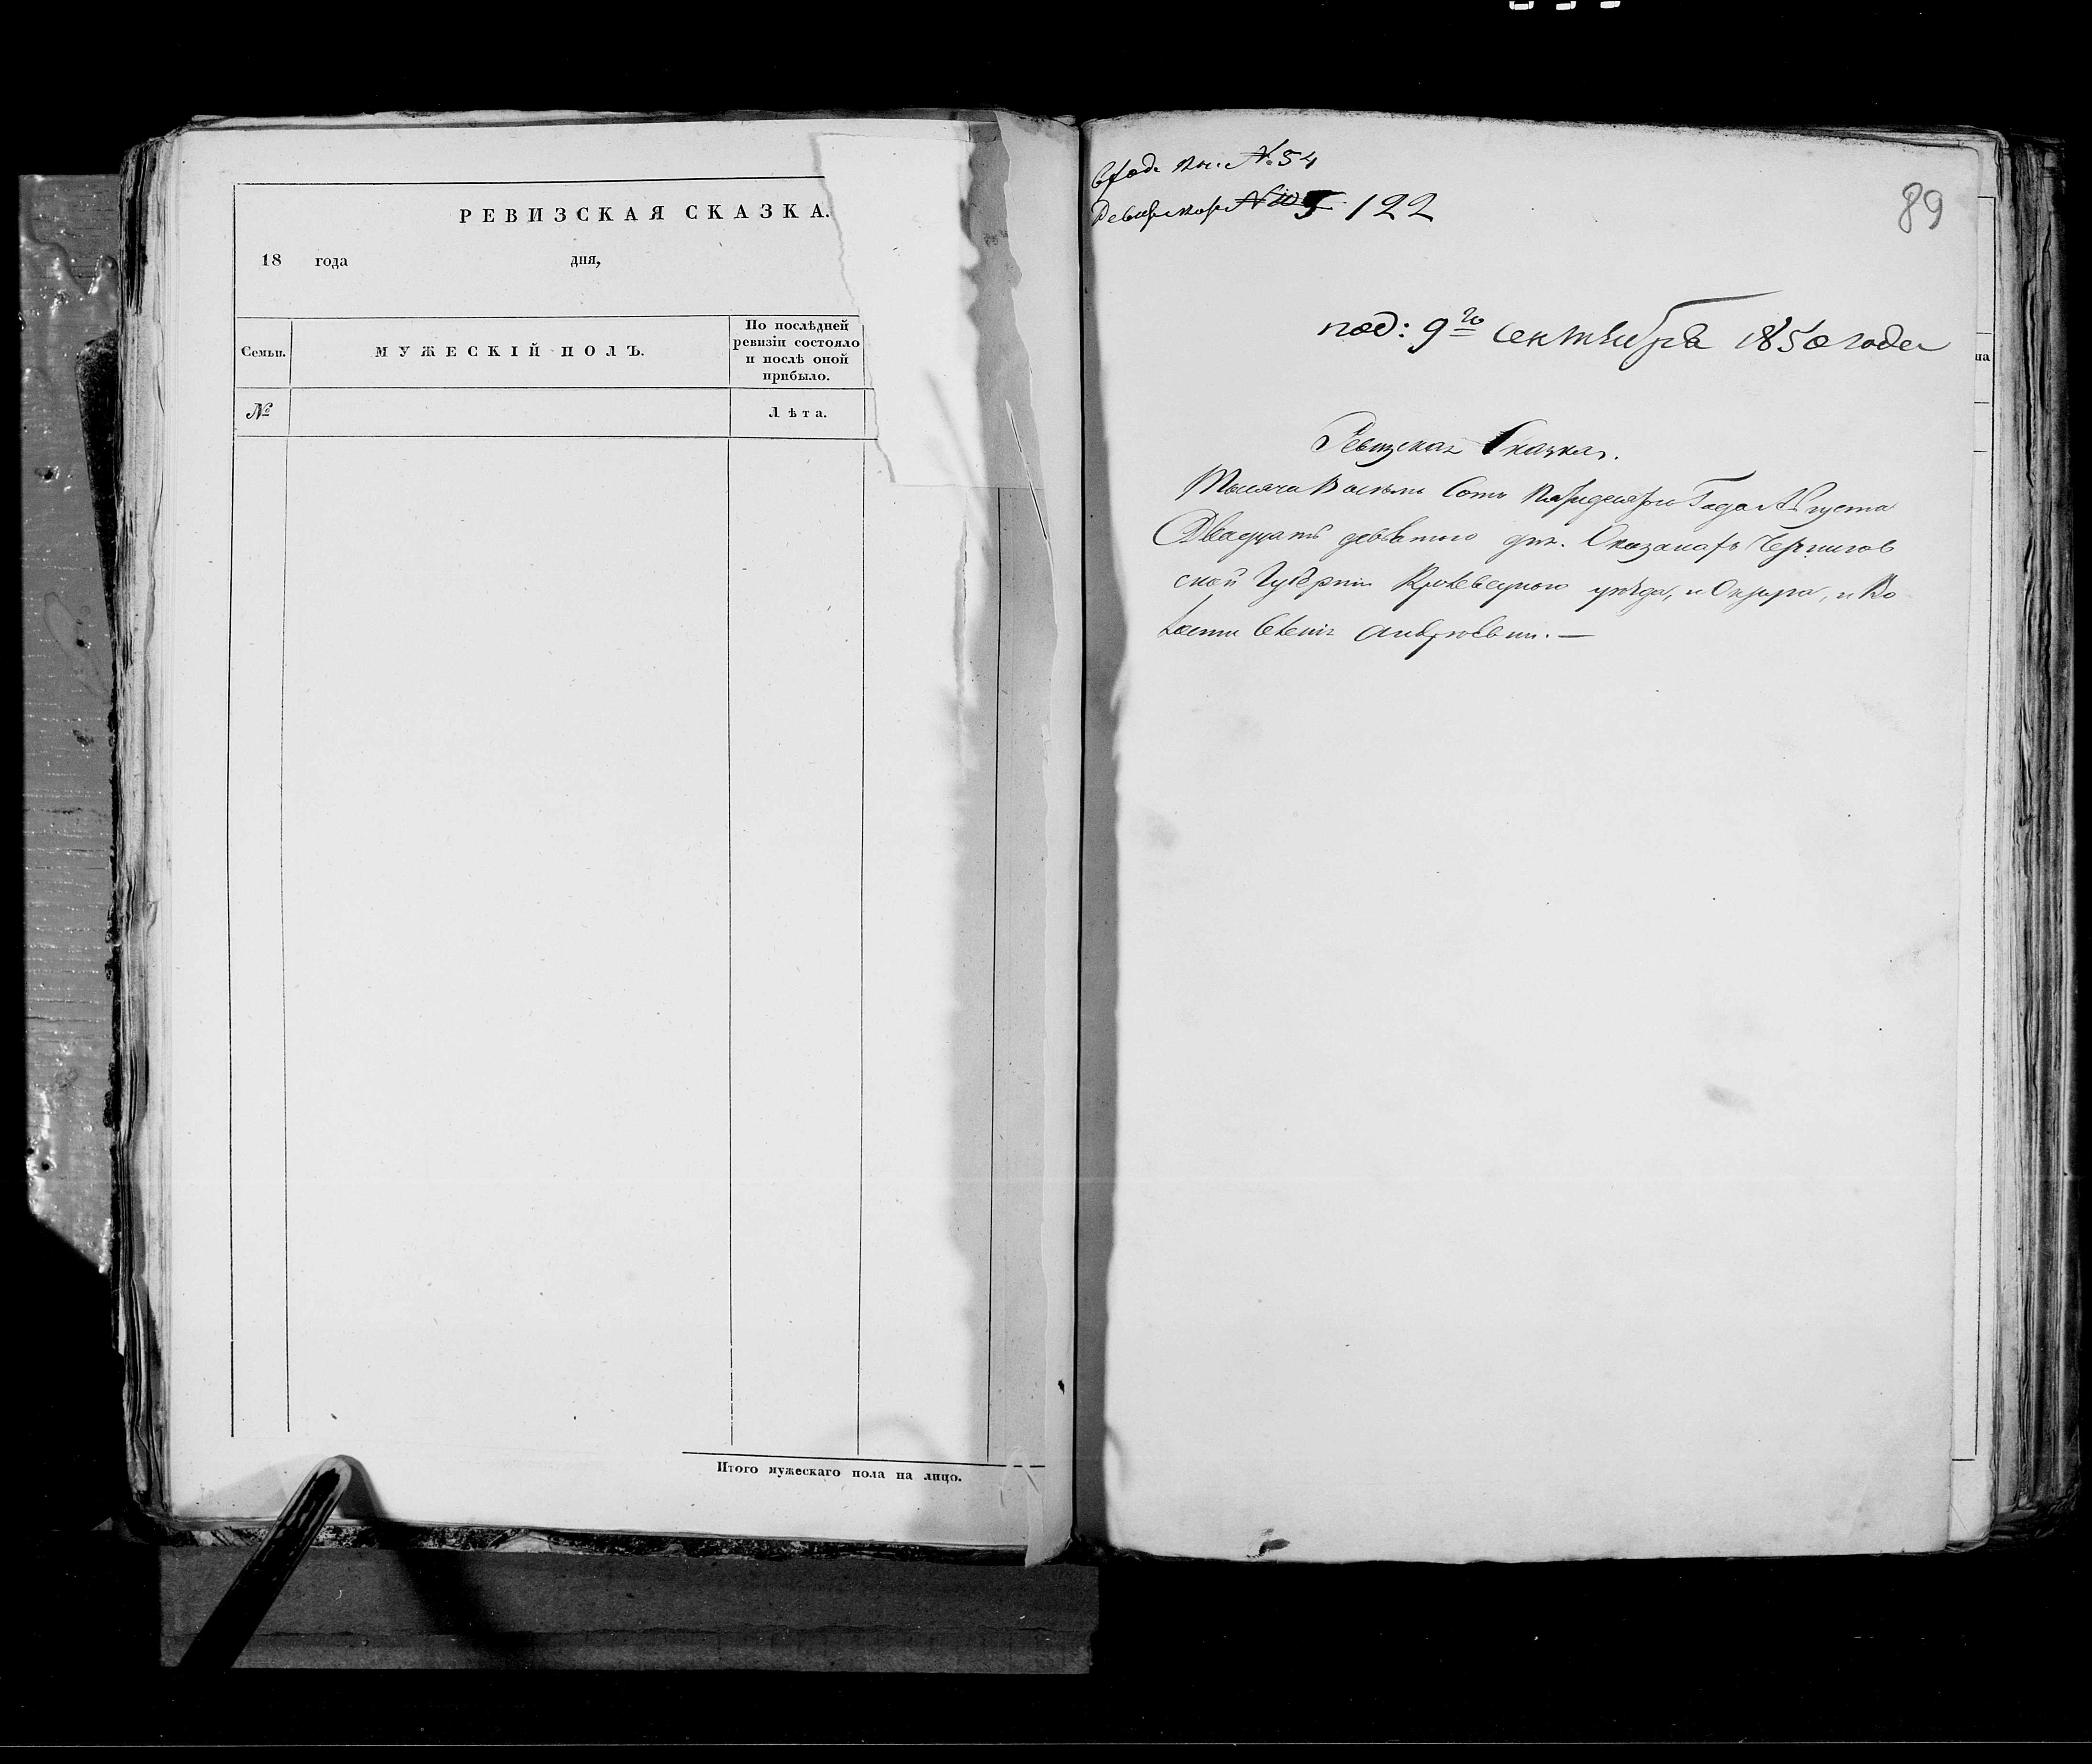 РЕВИЗСКАЯ СКАЗКА.
18 года дня,
Семьи.
МУЖЕСКІЙ ПОЛЪ.
По послѣдней
ревизіи состояло
и послѣ оной
прибыло.
№
Лѣта.
Итого мужескаго пола на лицо.
№ 54
122
89
под: 9го Сентября 1850 года
Ревизская Сказка.
Тысяча Восемь Сотъ Пятидесятого Года Августа
Двадцать девьятого дня. Чернигов
ской Губерніи Кролевецкого уѣзда, и Округа, и Во
лости
на